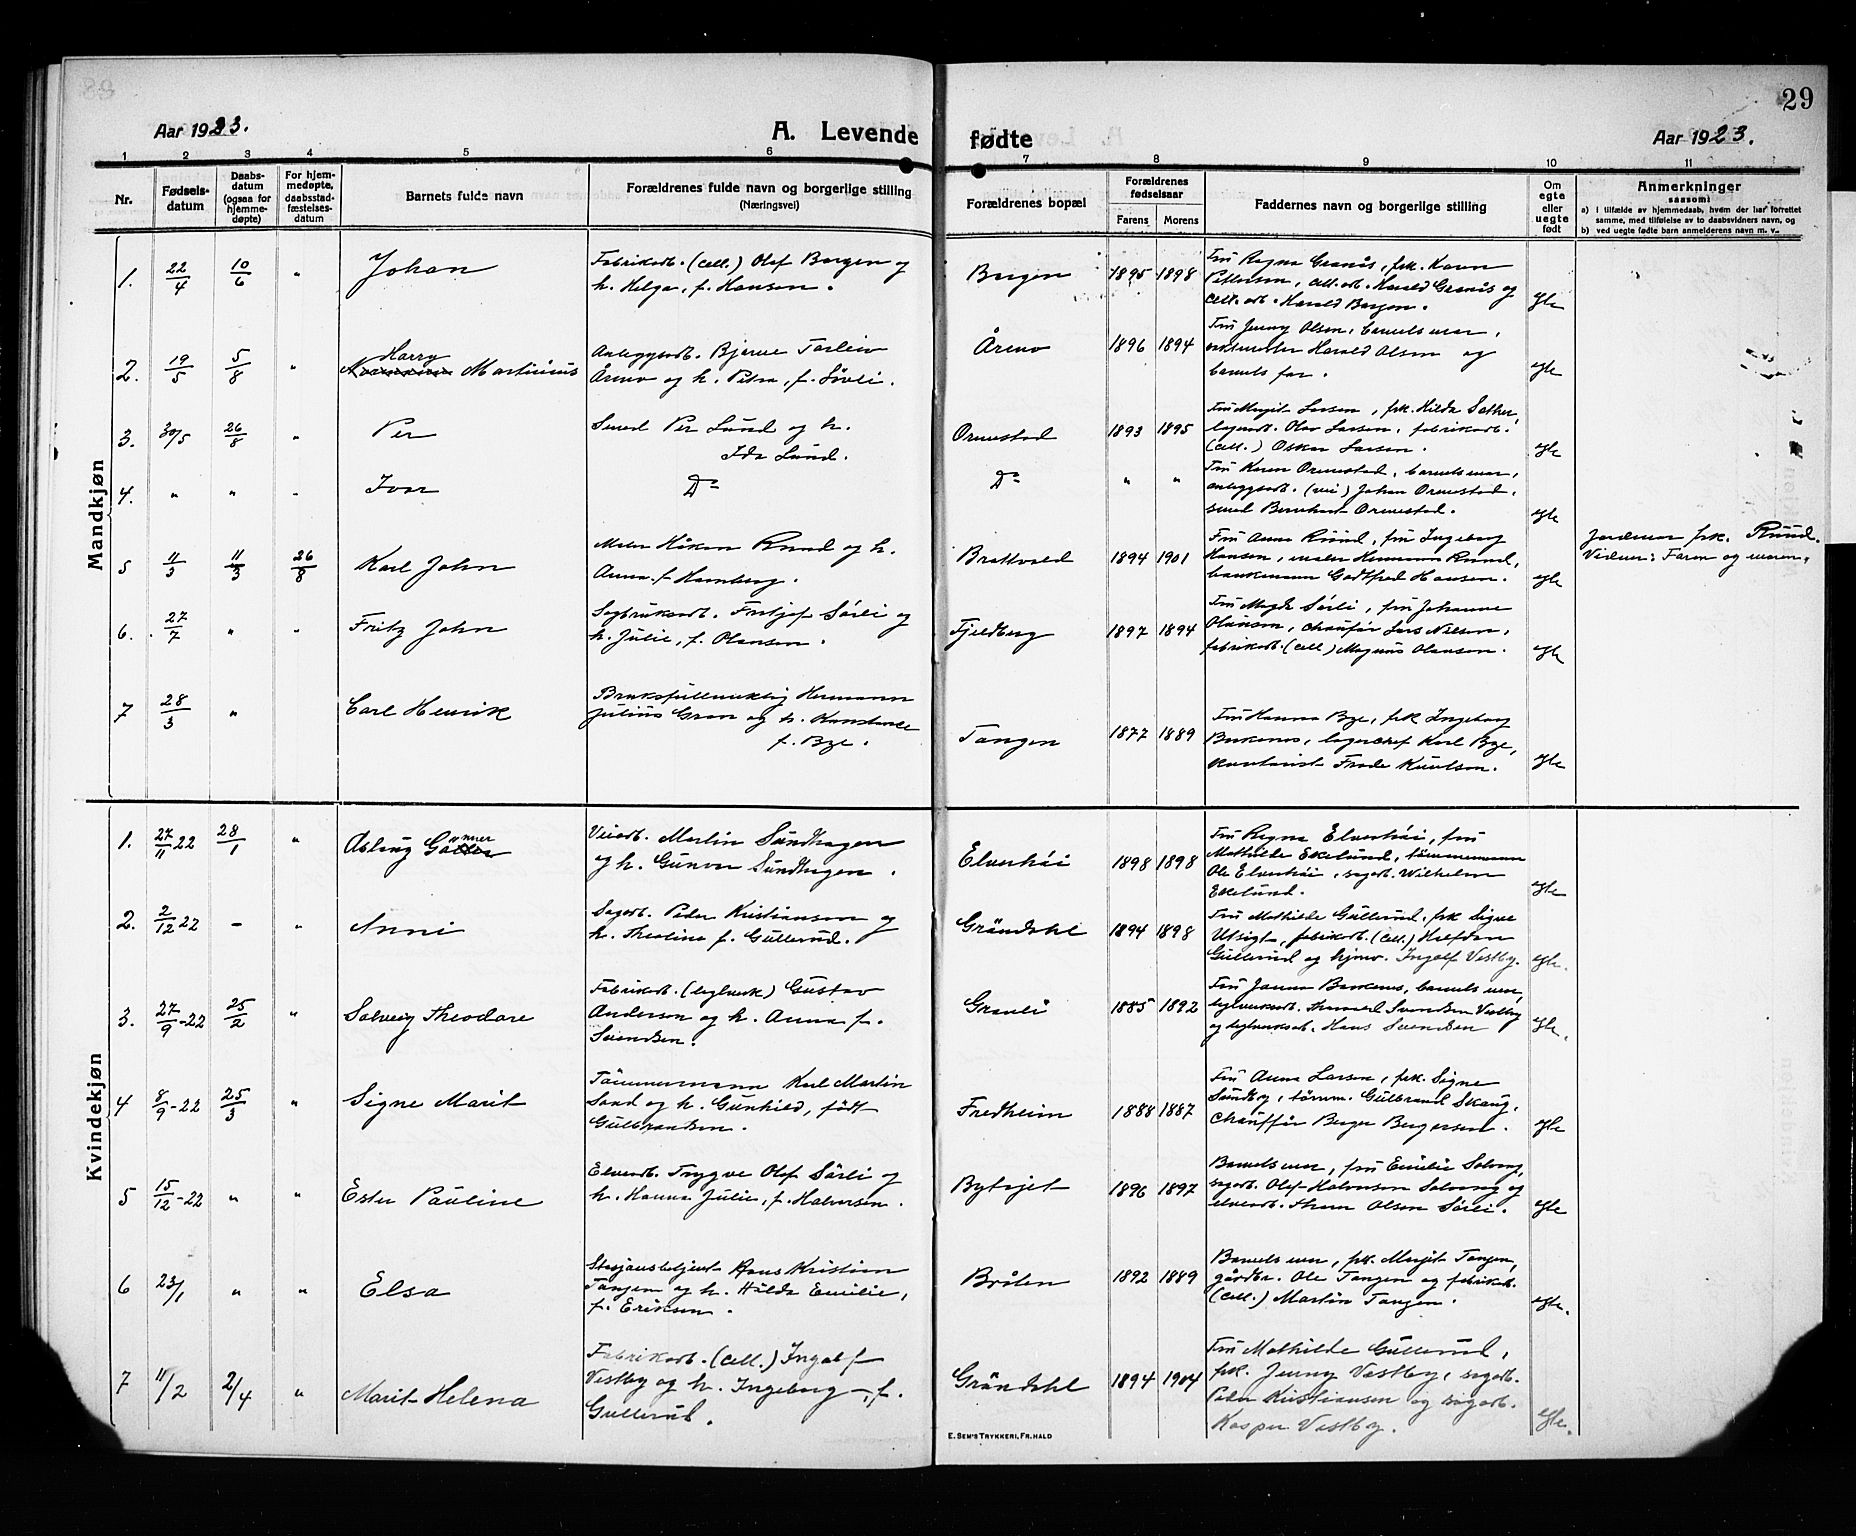 29
Aar 1923. A. Levende fødte Aar 1923.
1 2 3 4 5 6 7 8 9 10 11
Nr. Fødsels-datum Daabs-datum (ogsaa for hjemme-døpte) For hjem-medøpte, daabsstad-fæstelses-datum Barnets fulde navn Forældrenes fulde navn og borgerlige stilling (Næringsvei) Forældrenes bopæl Forældrenes fødselsaar Farens Morens Faddernes navn og borgerlige stilling Om egte eller uegte født Anmerkninger saasom:
a) i tilfælde av hjemmedaab, hvem der har forrettet samme, med tilføielse av to daabsvidners navn, og
b) ved uegte fødte barn anmelderens navn m. v.
Mandkjøn
1. 22/4 10/6 " Johan Fabrikarb. (cell.) Olaf Borgen og h. Helga, f. Hansen. Borgen 1895 1898 Fru Ragna Granås, frk. Karen Pettersen, cell. arb. Harald Granås og cell. arb. Harald Borgen. egte
2. 19/5 5/8 " Harry Martinius Anleggsarb. Bjarne Torleiv Årmo og h. Petra, f. Løvli. Årmo 1896 1894 Fru Jenny Olsen, barnets mor, Harald Olsen og barnets far. egte
3. 30/5 26/8 " Per Smed Per Lund og h. Ida Lund. Ormestad 1893 1895 Fru Margit Larsen, frk. Hilda Sather, Olav Larsen, fabrikarb. (cell.) Oskar Larsen. egte
4. " " " Ivar Do Do " " Fru Karen Ormestad, barnets mor, anleggsarb. (vei) Johan Ormestad, smed Bernhart Ormestad. egte
5 11/3 11/3 26/8 Karl John Maler Håkon Ruud og h. Anna f. Hamberg. Brattvold 1894 1901 Fru Anna Ruud, fru Ingeborg Hansen, maler Hermann Ruud, Godtfred Hansen. egte Jordmor frk. Ruud. Vidner: Faren og moren.
6. 27/7 " " Fritz John Sagbruksarb. Fritjof Sørli og h. Julie, f. Olausen. Fjeldberg 1897 1894 Fru Magda Sørli, fru Johanne Olausen, chaufør Lars Nilsen, fabrikarb. (cell) Magnus Olausen. egte
7 28/3 " Carl Henrik Bruksfullmektig Hermann Julius Gran og h. Konstance f. Bye. Tangen 1877 1889 Fru Hanna Bye, frk Ingeborg lagerchef Karl Bye, kontorist Frode Knutsen. egte
Kvindekjøn
1. 27/11 22 28/1 " Aslaug Gunver Veiarb. Martin Sundhagen og h. Gunvor Sundhagen. Elverhöi 1898 1898 Fru Ragna Elverhöi, fru Mathilde Ekelund, tömmermann Ole Elverhöi, sagarb. Wilhelm Ekelund. egte
2. 2/12 22 – " Anni Sagarb. Peder Kristiansen og h. Theoline f. Gullerud. Gröndahl 1894 1898 Fru Mathilde Gullerud, frk Signe Utsigt, fabrikarb. (cell.) Halfdan Gullerud og Ingolf Vestby. egte.
3. 27/9 -22 25/2 " Solveig Theodore Fabrikarb. (teglverk) Gustav Anderson og h. Anna f. Svendsen. Granli 1885 1892 Fru Janna Bakkenes, barnets mor, teglverksarb. Svendsen Vestby og teglverksarb. Hans Svendsen egte.
4 8/9 -22 25/3 " Signe Marit Tömmermann Karl Martin Sand og h. Gunhild, födt Gulbrandsen. Fredheim 1888 1887 Fru Anna Larsen, frk. Signe Sundby, tömm. Gulbrand Skaug, Chauffør Birger Bergersen. egte
5 15/12 -22 " " Ester Pauline Elvearb. Trygve Olaf Sörli og h. Hanna Julie, f. Halvorsen. Bytajet 1896 1897 Barnets mor, fru Emilie Solvang, sagarb. Olaf Halvorsen Solvang og elvearb. Thom Olsen Sörli. egte
6 23/1 " " Elsa Stasjonsbetjent Hans Kristian Tangen og h. Hilda Emilie, f. Eriksen. Bråten 1892 1889 Barnets mor, frk. Margit Tangen, gårdbr. Ole Tangen og fabrikarb. (cell.) Martin Tangen. egte.
7 11/2 2/4 " Marit Helena Fabrikarb. (cell.) Ingolf Vestby og h. Ingeborg, f. Gullerud. Gröndahl 1894 1904 Fru Mathilde Gullerud, frk. Jenny Vestby, sagarb. Peder Kristiansen og sagarb. Kasper Vestby. egte.
E. SEM'S TRYKKERI, FR.HALD